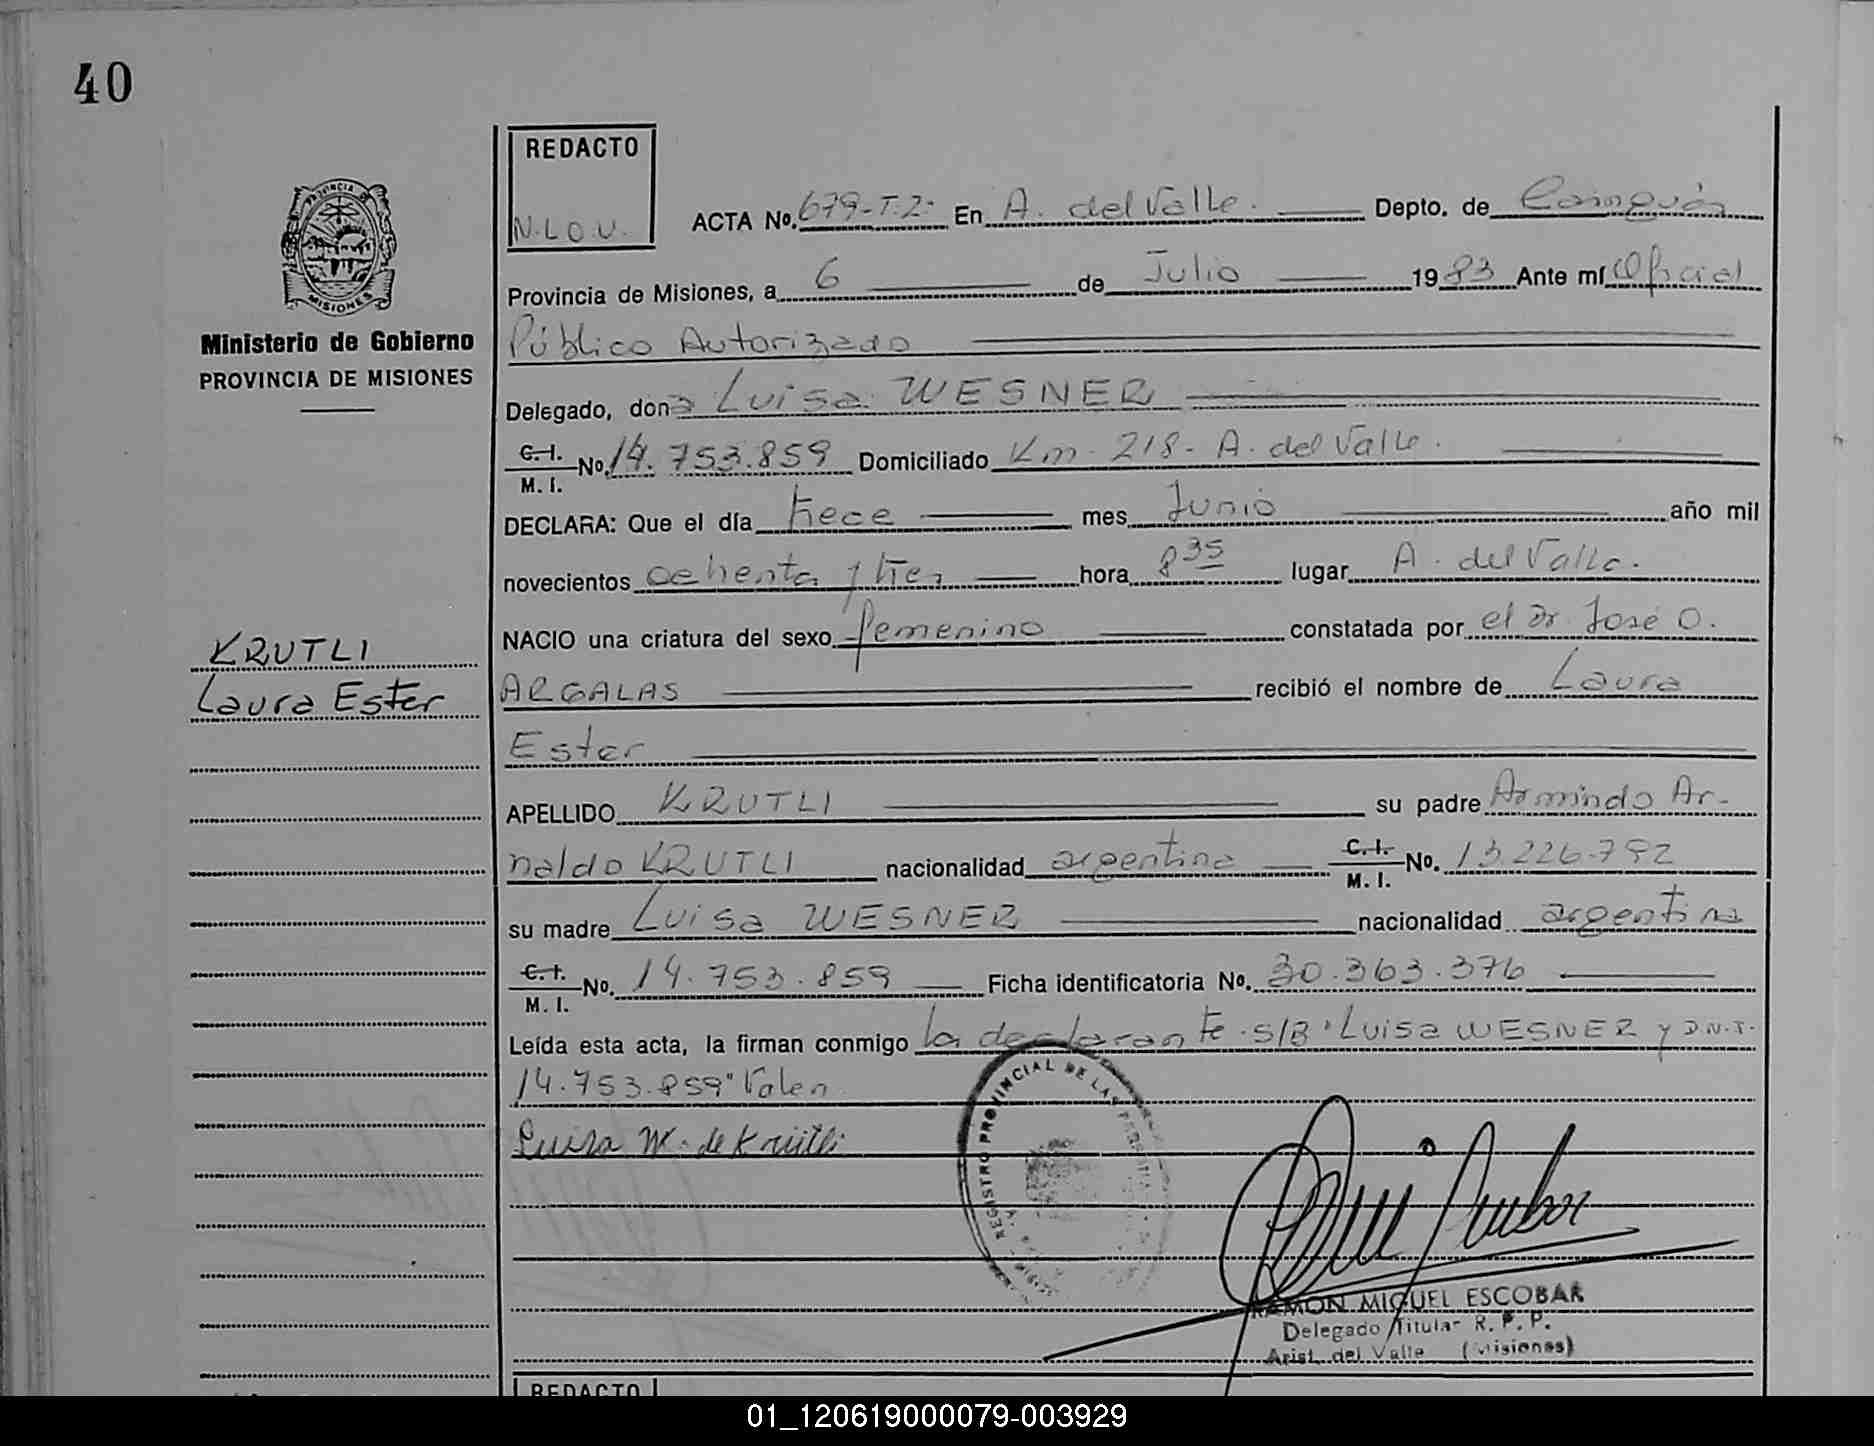 40
REDACTO
N.L.O.U.
ACTA No. 679-T.2- En A. del Valle. Depto. de Cainguás
PROVINCIA DE
MISIONES
Provincia de Misiones, a 6 de Julio 1983 Ante mí Oficial
Ministerio de Gobierno
PROVINCIA DE MISIONES
Público Autorizado
Delegado, don a Luisa WESNER
C.I. M.I. No. 14.753.859 Domiciliado Km. 218- A. del Valle.
DECLARA: Que el día trece mes Junio año mil
novecientos ochenta y tres hora 8 35 lugar A. del Valle.
NACIO una criatura del sexo femenino constatada por el Dr José O.
KRUTLI
Laura Ester
ARGALAS recibió el nombre de Laura
Ester
APELLIDO KRUTLI su padre Armindo Ar-
naldo KRUTLI nacionalidad argentina C.I. M.I. No. 13.226.792
su madre Luisa WESNER nacionalidad argentina
C.I. M.I. No. 14.753.859 Ficha identificatoria No. 30.363.376
Leída esta acta, la firman conmigo la declarante. S/B "Luisa WESNER y D.N.I.
14.753.859" Valen
Luisa W. de Krütli
REGISTRO PROVINCIAL DE LAS
RAMON MIGUEL ESCOBAR
Delegado Titular R. P. P.
Arist. del Valle (Misiones)
REDACTO
01_120619000079-003929